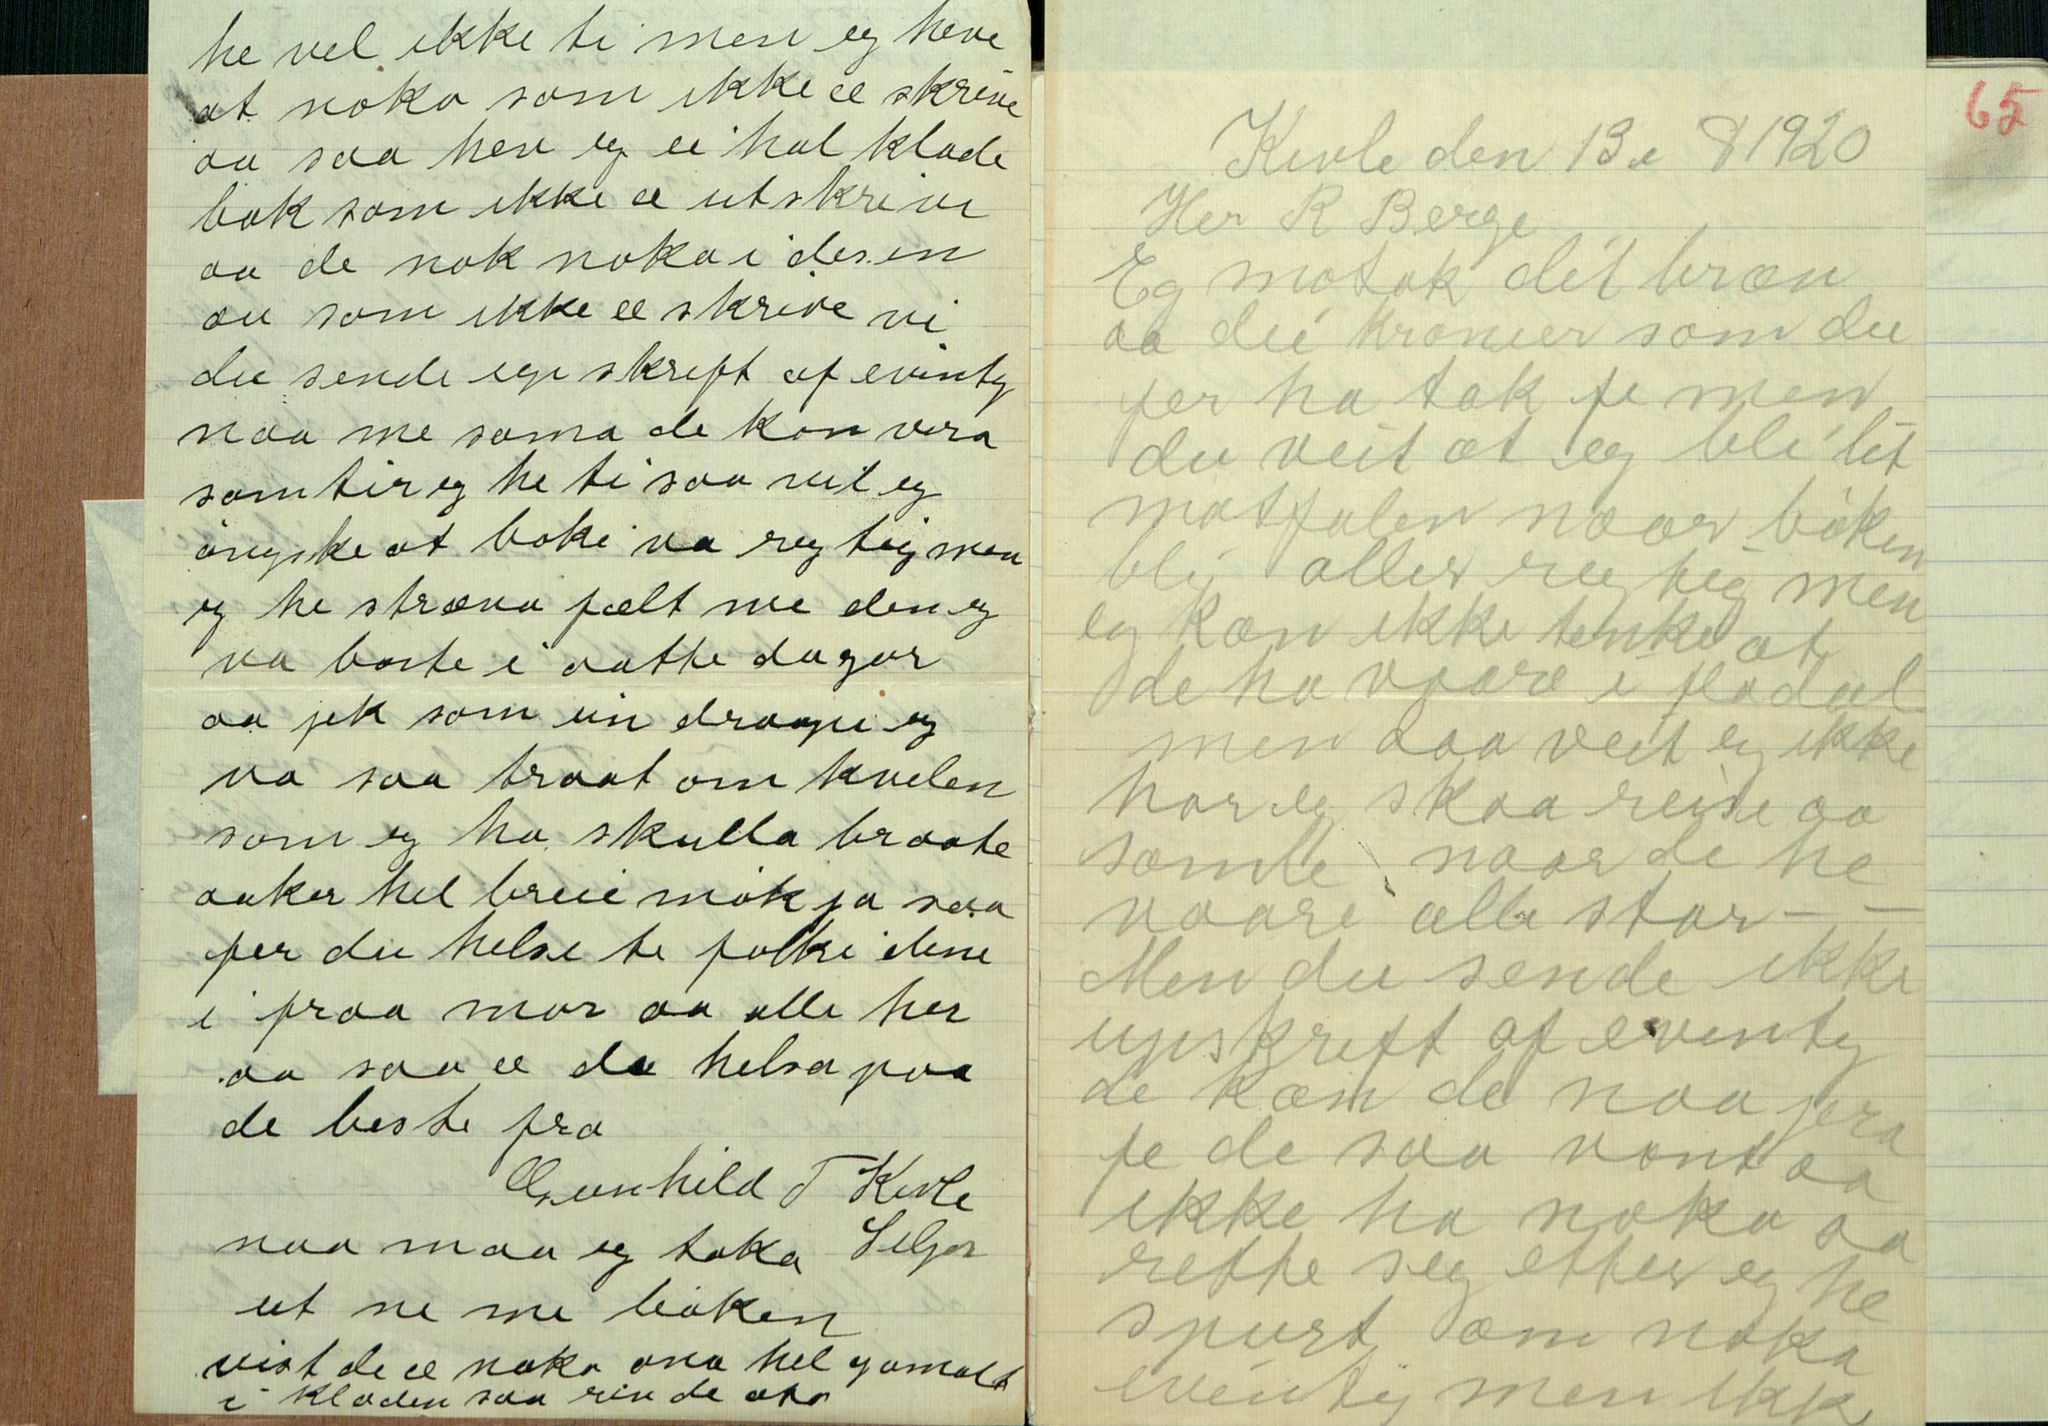 he vel ikke ti men eg heve
at noko som ikke æ skrive
aa saa hev eg ei hal klade
bok som ikke æ utskrive
aa de nok noko i des. en
au som ikke æ skrive vi
du sende up skreft af eventy
naa me soma de kan vera
som tir eg he ti saa vil eg
önyske at boki va regtig men
eg he stræva fælt me den eg
va borte i aatte dagar
aa jek som ein draape eg
va saa traat om kvelen
som eg ha skulla braate
aaker hel breie mök ja saa
fer du helse te folki dine
i fraa mor aa alle her
aa saa æ du helsa paa
de beste fra
Gunhild T Kivle
naa maa eg taka Seljor
ut ne me böken
vist de æ noko ana hel gamalt
i kladen saa riv de

65
Kivle den 13 e 8 1920
Her R Berge
Eg motok dit bræv
aa dei kroner som du
fer ha tak fe men
du veit at eg bli lit
motfalen naar böken
bli aller regtig men
eg kan ikke tenke at
de ha vaare i fladal
men daa veit eg ikke
hor eg skaa reise aa
samle naar de he
vaare alle star — —
Men du sende ikke
upskreft af eventy
de kan de naa jera
fe de saa vont aa
ikke ha noko aa
rette seg etter eg he
spurt om noko
eventy men ikk